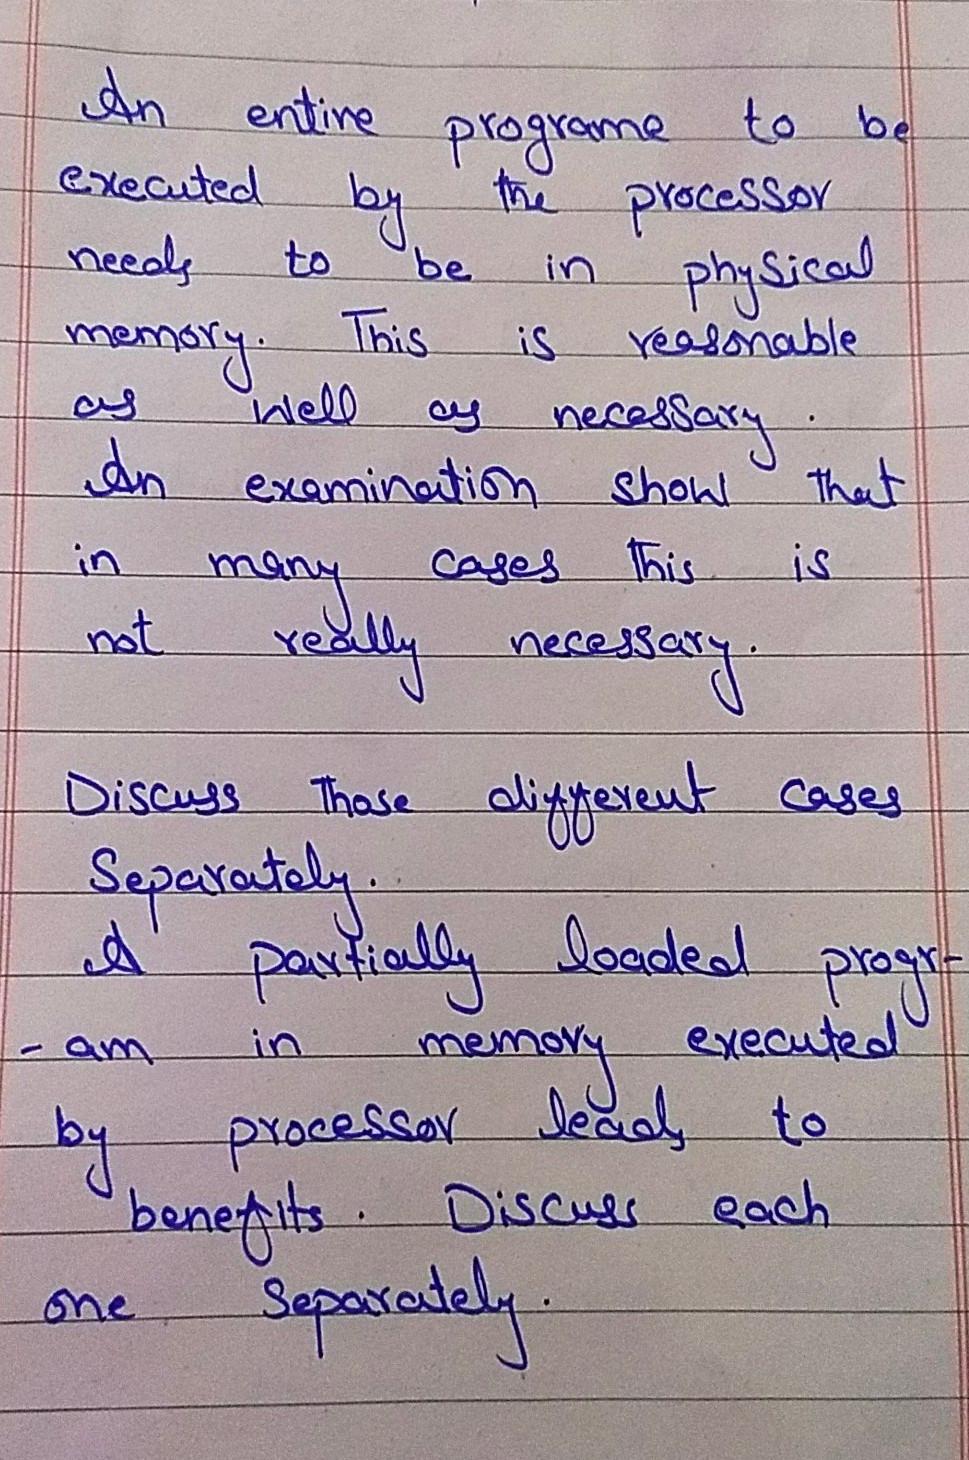 An entire programe to be
executed by the processor
needs to be in physical
memory. This is reasonable
as well as necessary.
An examination show that
in many cases this is
not really necessary.
Discuss those different cases
Separately.
A partially loaded progr-
- am in memory executed
by processor leads to
benefits. Discuss each
one separately.